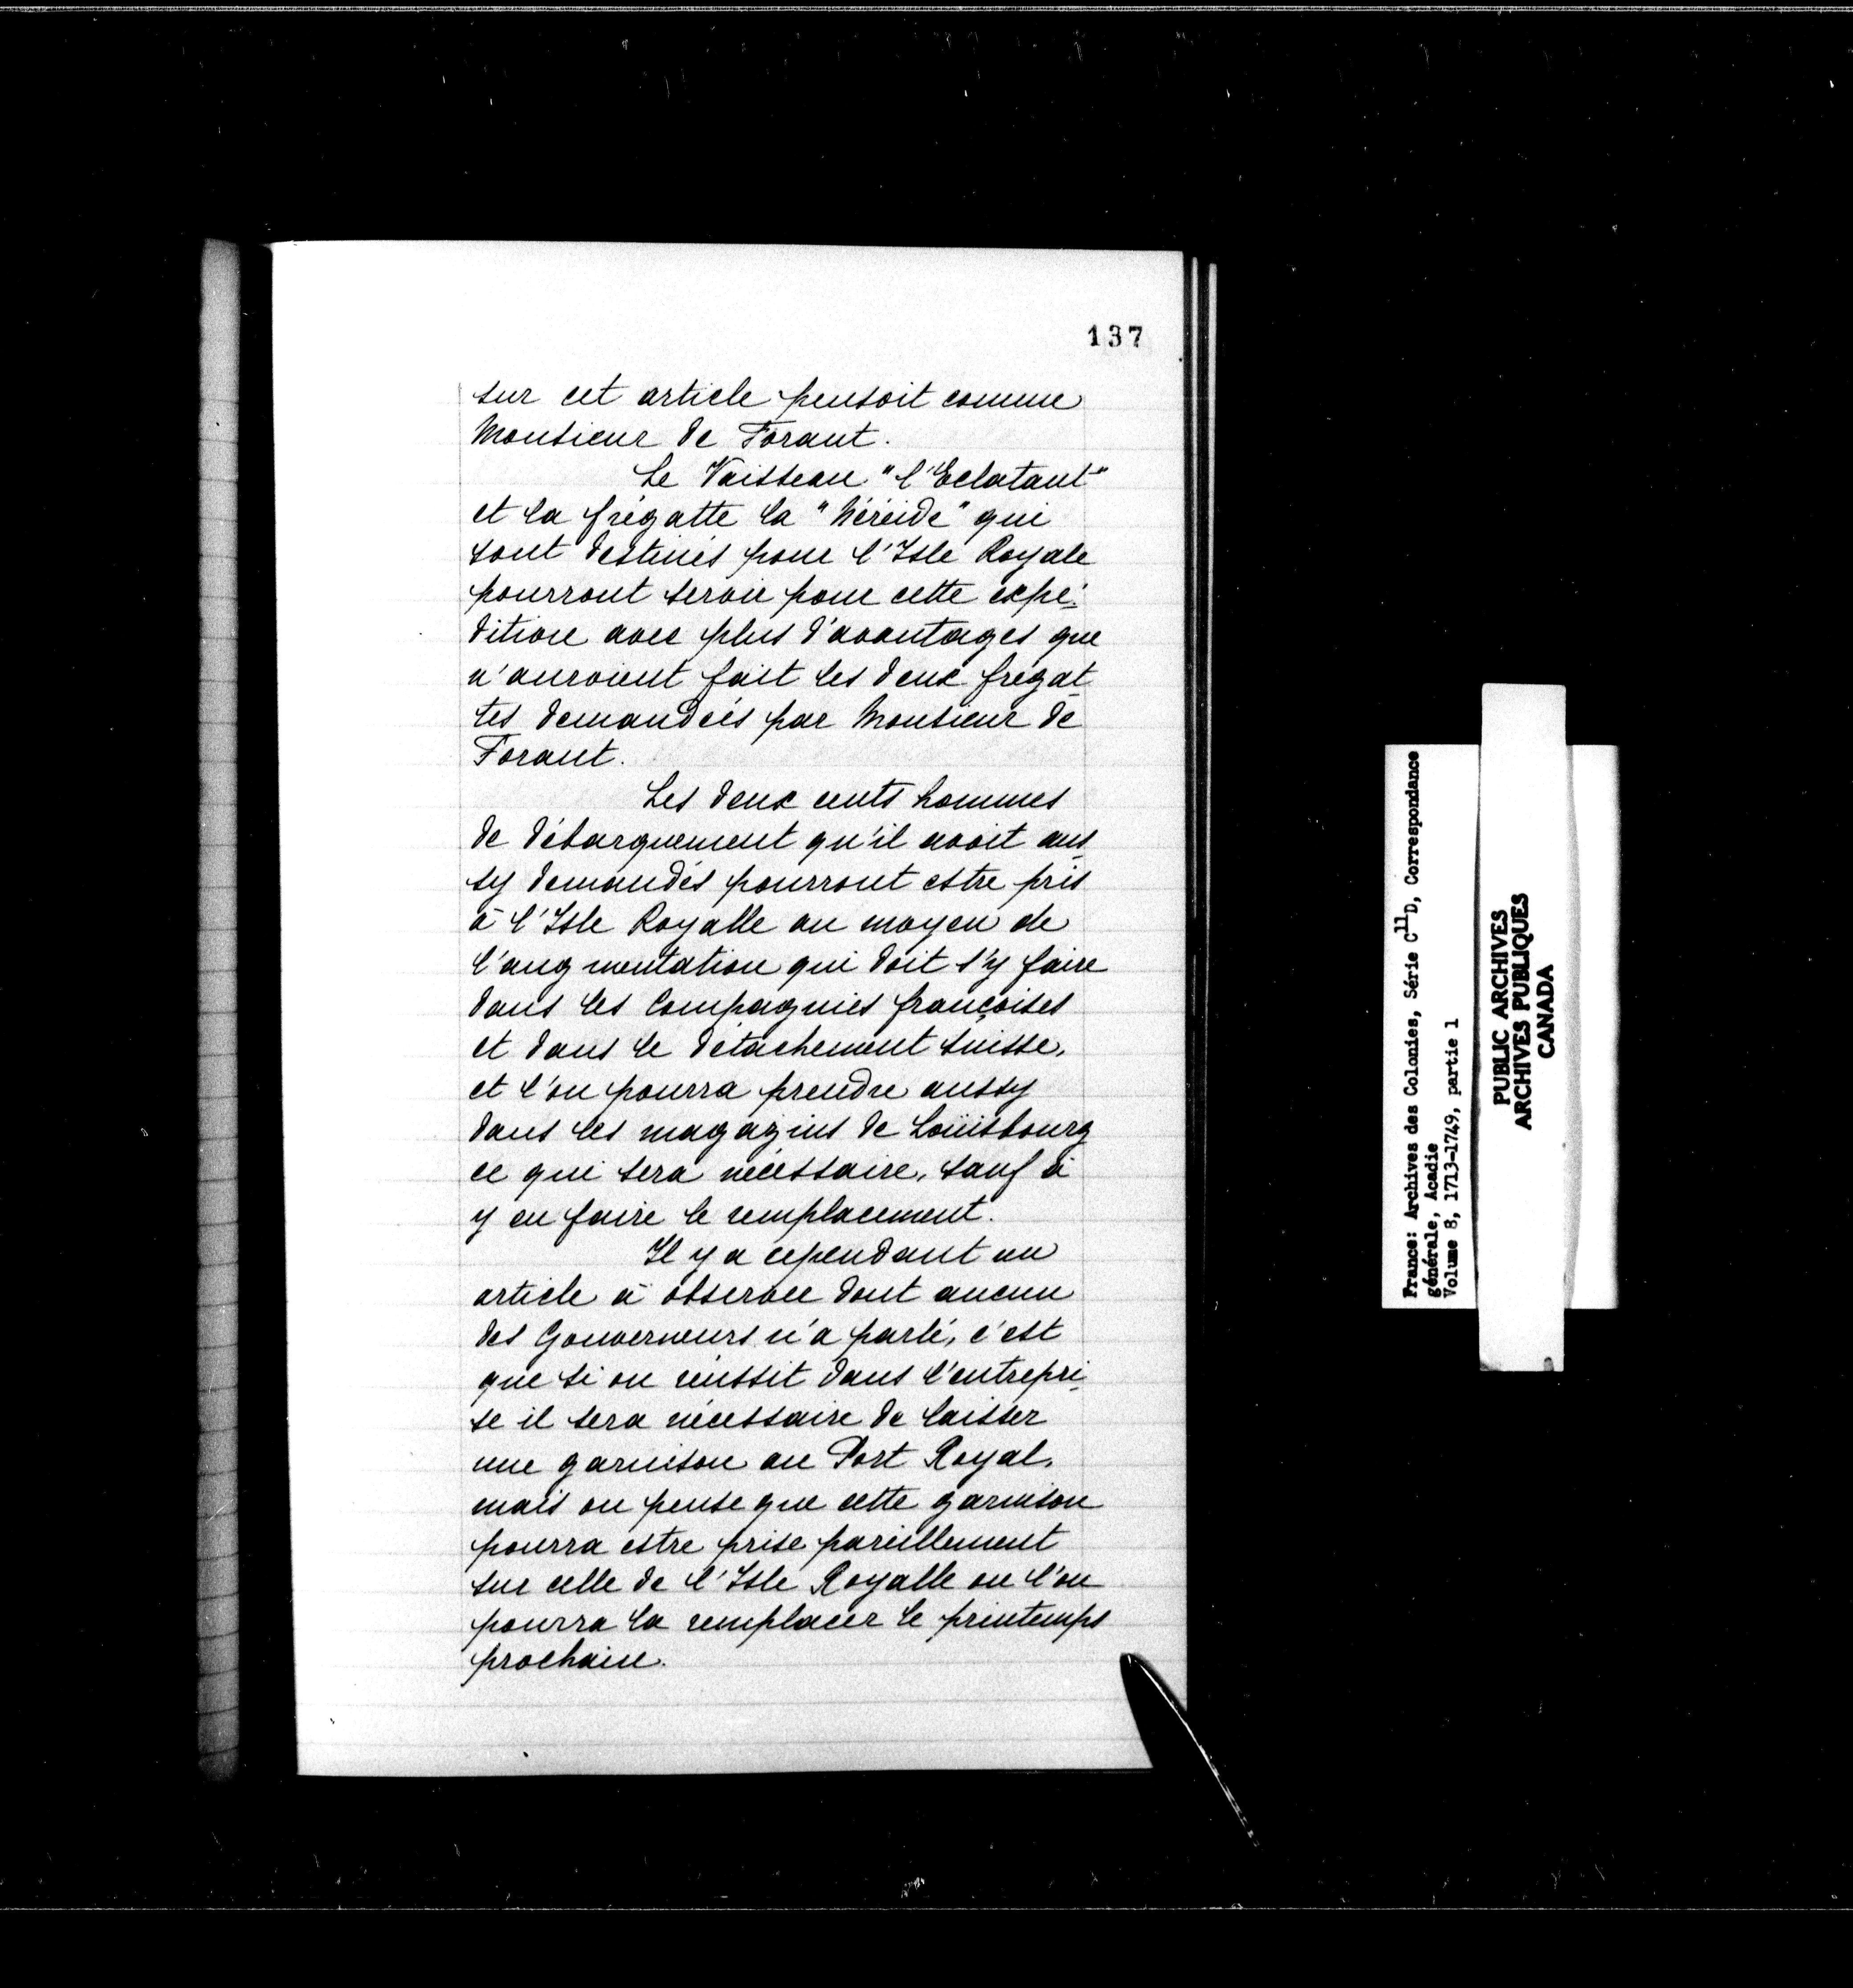 137
sur cet article pensoit comme
Monsieur de Forant.
Le Vaisseau "l'Eclatant"
et la frégatte la "Néréide" qui
sont destinés pour l'Isle Royale
pourront servir pour cette expé-
dition avec plus d'avantages que
n'auroient fait les deux frégat-
tes demandées par Monsieur de
Forant.
Les deux cents hommes
de débarquement qu'il avoit aus-
sy demandés pourront estre pris
à l'Isle Royalle au moyen de
l'augmentation qui doit s'y faire
dans les Compagnies françoises
et dans le détachement suisse,
et l'on pourra prendre aussy
dans les magazins de Loüisbourg
ce qui sera nécessaire, sauf à
y en faire le remplacement.
Il y a cependant un
article à observer dont aucun
des Gouverneurs n'a parlé, c'est
que si on réussit dans l'entrepri-
se il sera nécessaire de laisser
une garnison au Port Royal,
mais on pense que cette garnison
pourra estre prise pareillement
sur celle de l'Isle Royalle ou l'on
pourra la remplacer le printemps
prochain.
France: Archives des Colonies, Série C11D, Correspondance
générale, Acadie
Volume 8, 1713-1749, partie 1
PUBLIC ARCHIVES
ARCHIVES PUBLIQUES
CANADA